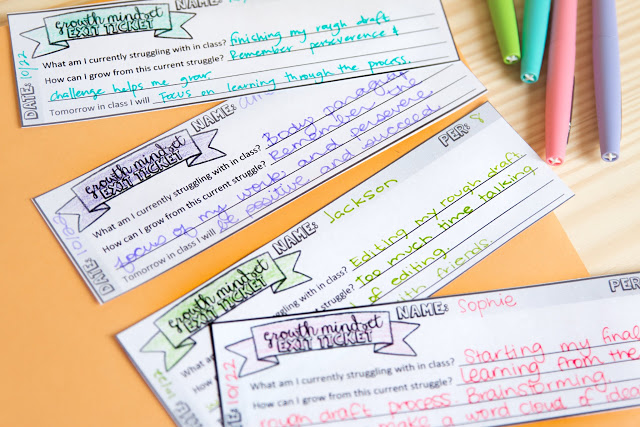 growth mindset
EXIT TICKET
NAME:
DATE: 10/22
What am I currently struggling with in class? finishing my rough draft
How can I grow from this current struggle? Remember perseverence &
challenge helps me grow
Tomorrow in class I will focus on learning through the process.
growth mindset
EXIT TICKET
NAME:
DATE: 10/22
What am I currently struggling with in class? Body paragraph
How can I grow from this current struggle? Remember the
focus of my work and persevere.
Tomorrow in class I will be positive and succeed.
growth mindset
EXIT TICKET
NAME: Jackson
PER: 8
struggling with in class? Editing my rough draft
struggle? Too much time talking
of editing.
with friends.
growth mindset
EXIT TICKET
NAME: Sophie
PER:
10/22
What am I currently struggling with in class? Starting my final
How can I grow from this current struggle? learning from the
rough draft process. Brainstorming.
make a word cloud of ideas